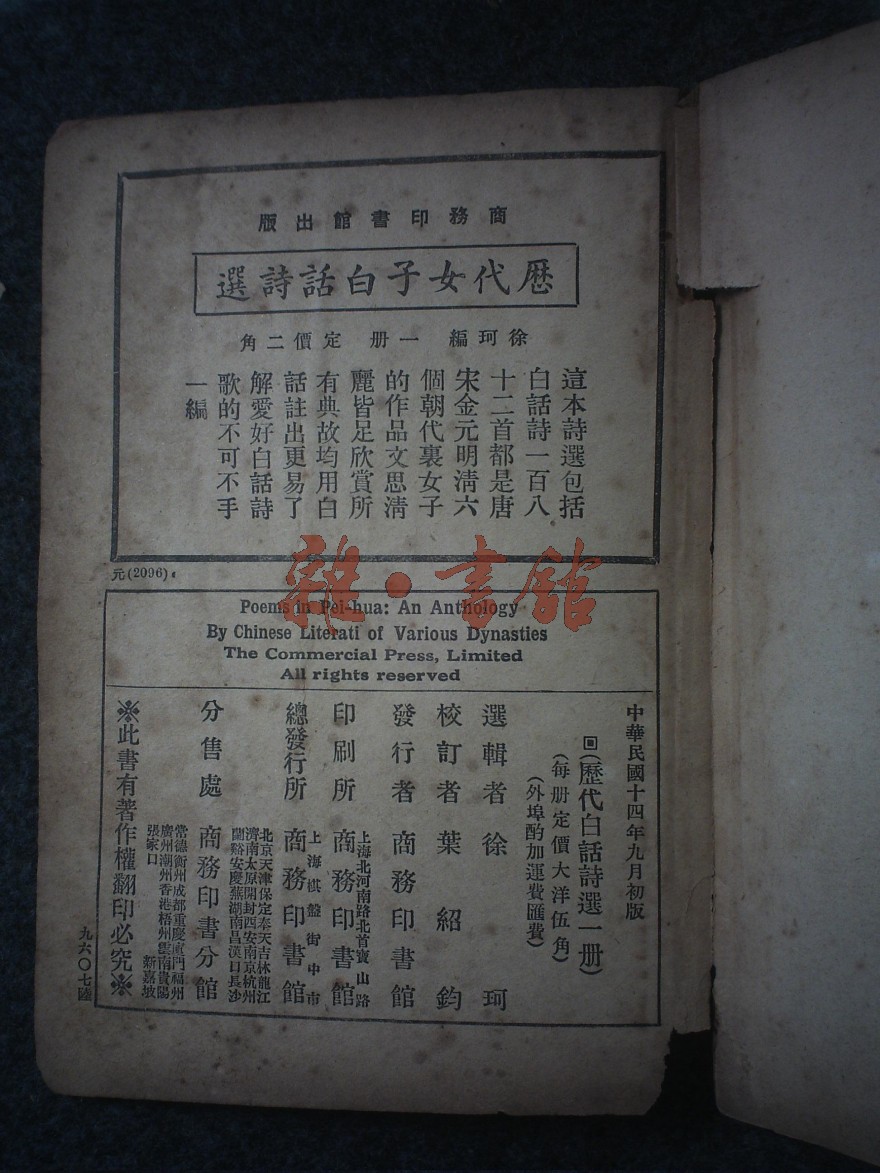 商務印書館出版
歷代女子白話詩選
徐珂編 一册 定價二角
這本詩選包括
白話詩一百八
十二首都是唐
宋金元明清六
個朝代裏女子
的作品文思清
麗皆足欣賞所
有典故均用白
話註出更易了
解愛好白話詩
歌的不可不手
一編
元(2096)
雜·書舘
Poems in Pei-hua: An Anthology
By Chinese Literati of Various Dynasties
The Commercial Press, Limited
All rights reserved
中華民國十四年九月初版
(歷代白話詩選一册)
(每册定價大洋伍角)
(外埠酌加運費匯費)
選輯者 徐珂
校訂者 葉紹鈞
發行者 商務印書館
印刷所 上海北河南路北首寶山路 商務印書館
總發行所 上海棋盤街中市 商務印書館
分售處 商務印書分館
北京天津保定奉天吉林龍江
濟南太原開封西安南京杭州
蘭谿安慶蕪湖南昌漢口長沙
常德衡州成都重慶廈門福州
廣州潮州香港梧州雲南貴陽
張家口 新嘉坡
※此書有著作權翻印必究※
九六〇七陸